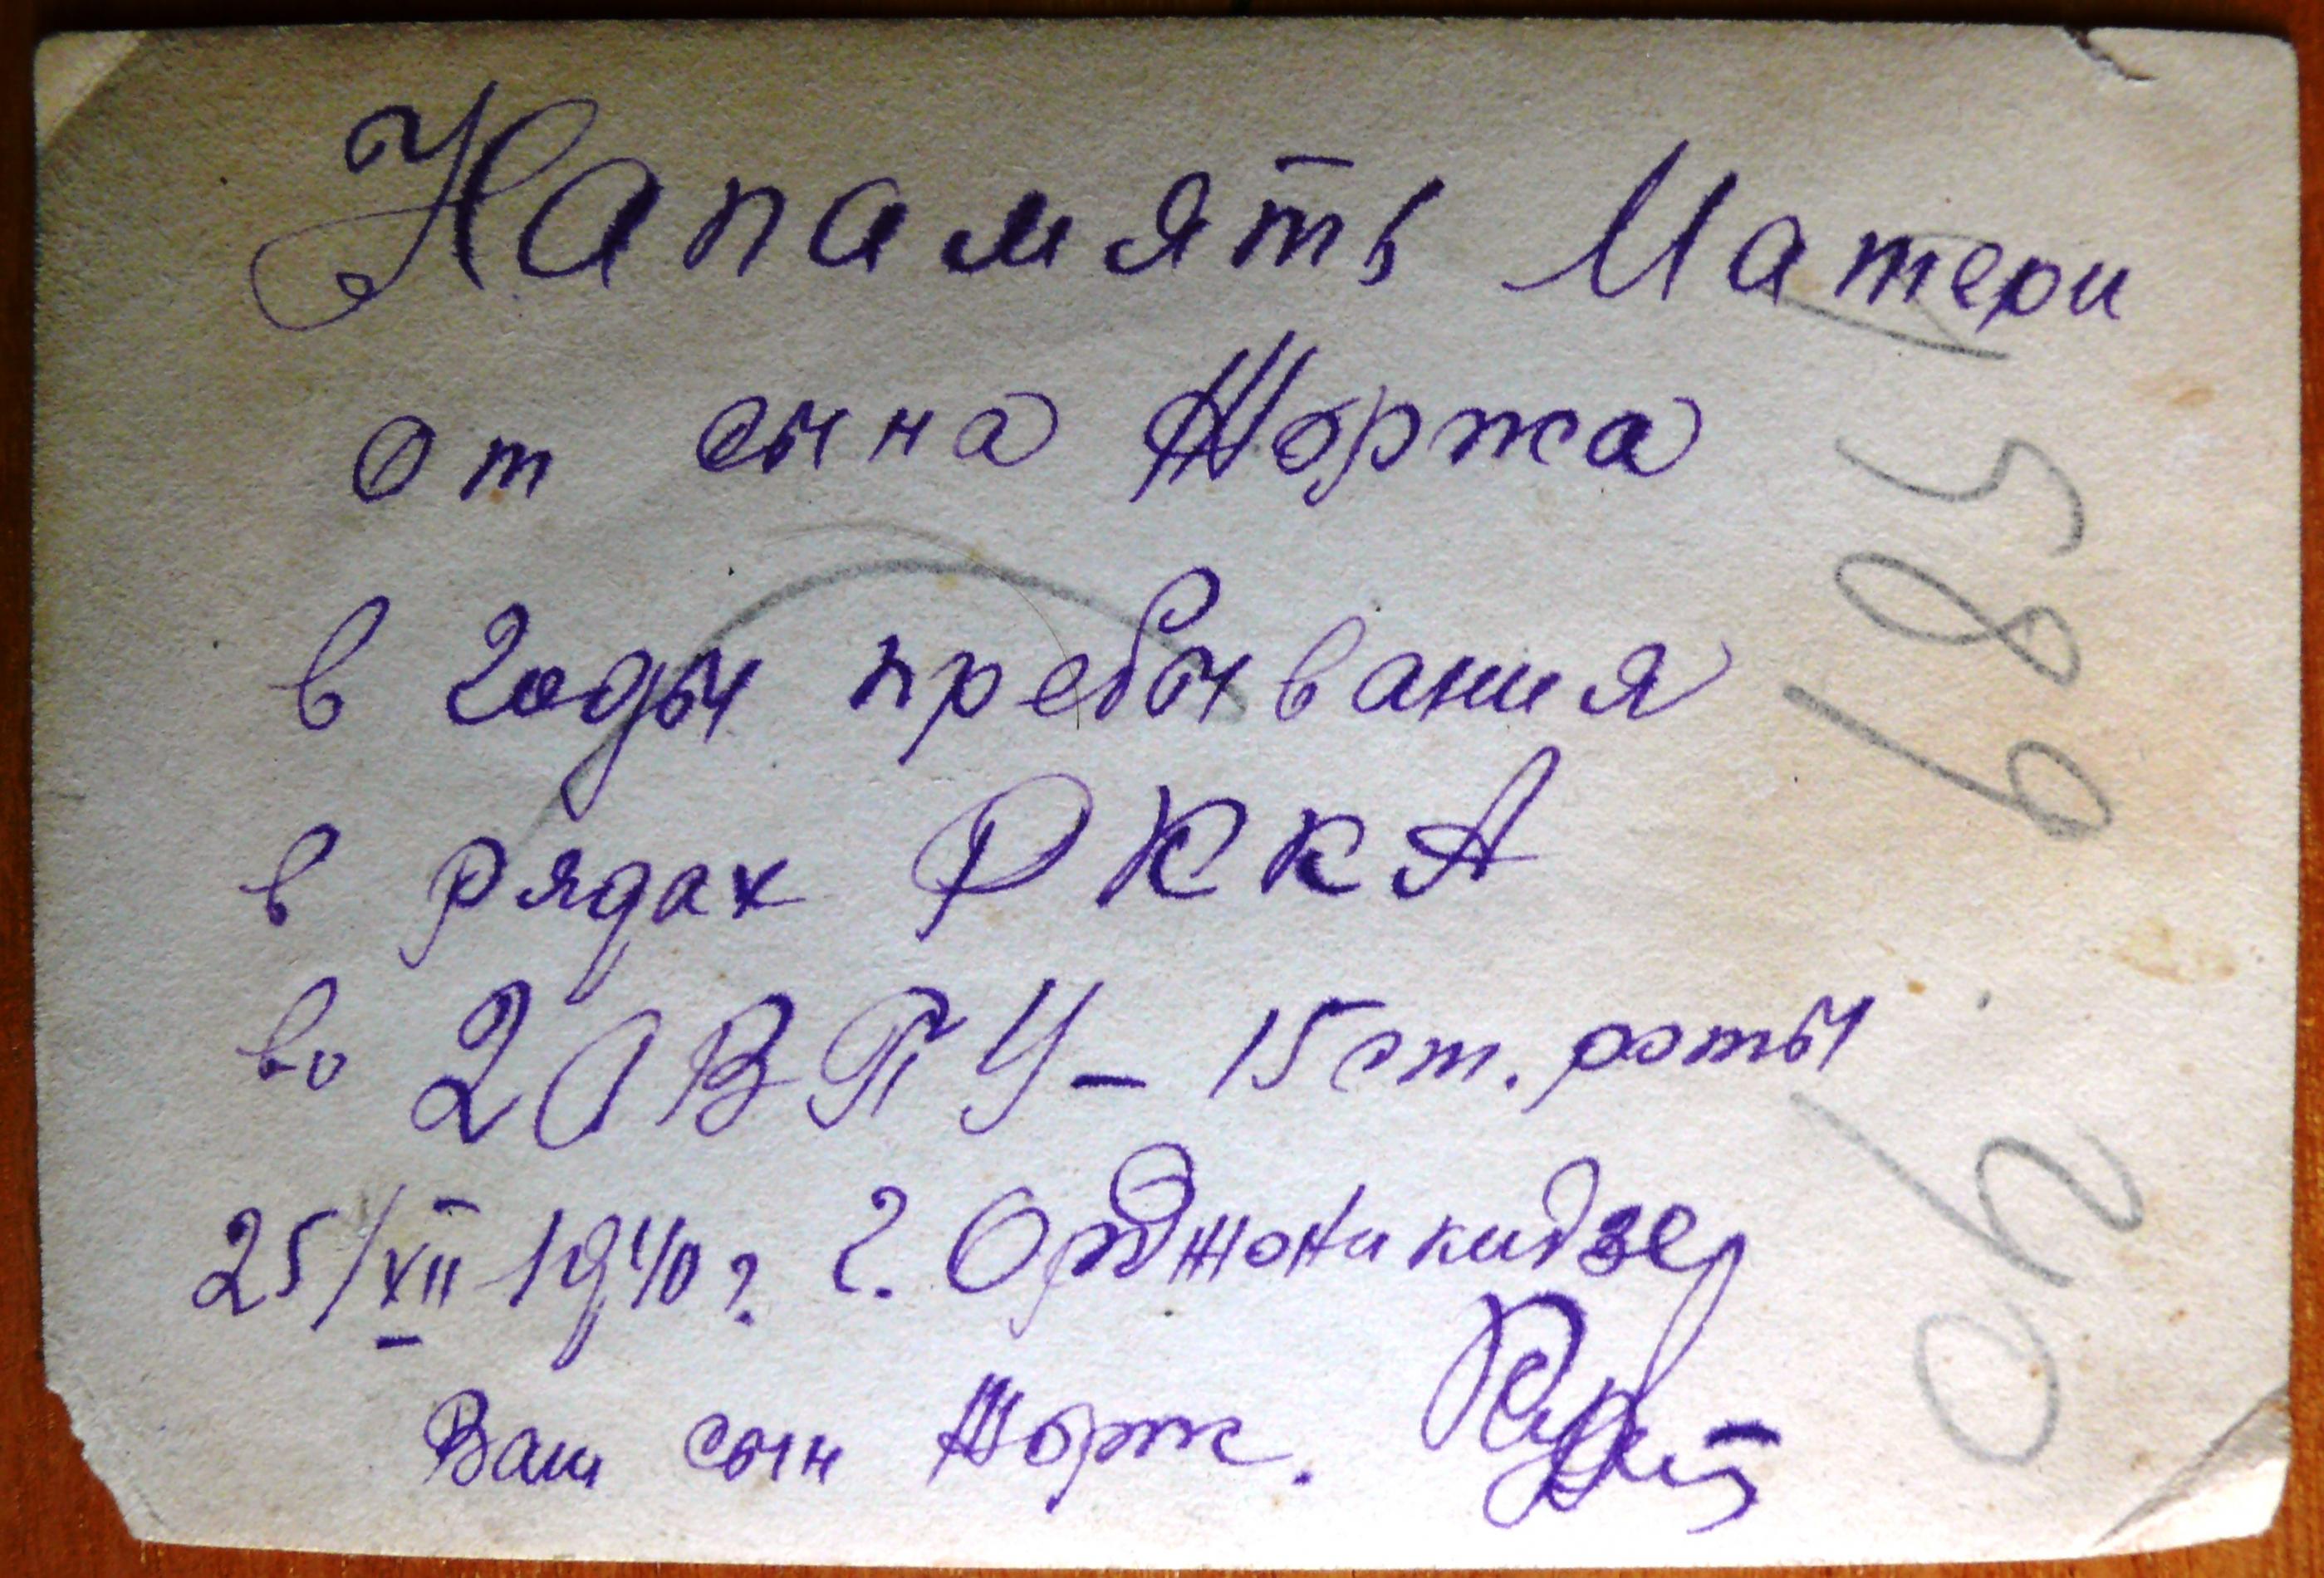 Напамять Матери
от сына Жоржа
в годы пребывания
в рядах РККА
во 2ОВПУ – 15 от. роты
25/XII 1940 г. г. Орджоникидзе
Ваш сын Жорж.
1589
40